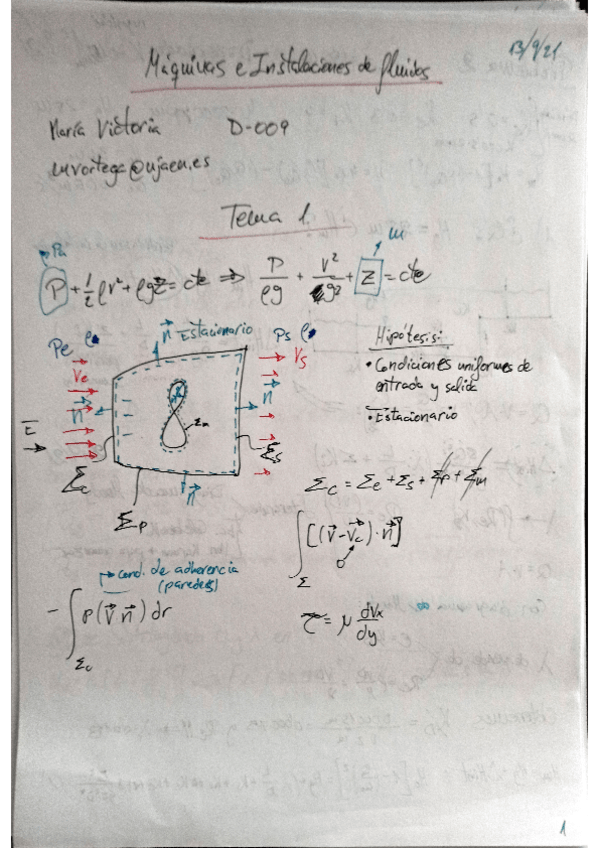 13/9/21
Máquinas e Instalaciones de fluidos
María Victoria D-009
mvortega@ujaen.es
Tema 1.
Pa
m
P + 1/2 ρv² + ρgz = cte ⇒ P/ρg + v²/g2 + z = cte
n Estacionario
Pe ρ
Ps ρ
Ve
Vs
n
n
Σm
Σe
Σs
Σp
n
Hipótesis:
• Condiciones uniformes de
entrada y salida
• Estacionario
Σc = Σe + Σs + Σp + Σm
∫Σ [(v - vc) · n]
0
cond. de adherencia
(paredes)
- ∫Σc ρ(v n) dr
τ = μ dvx/dy
1